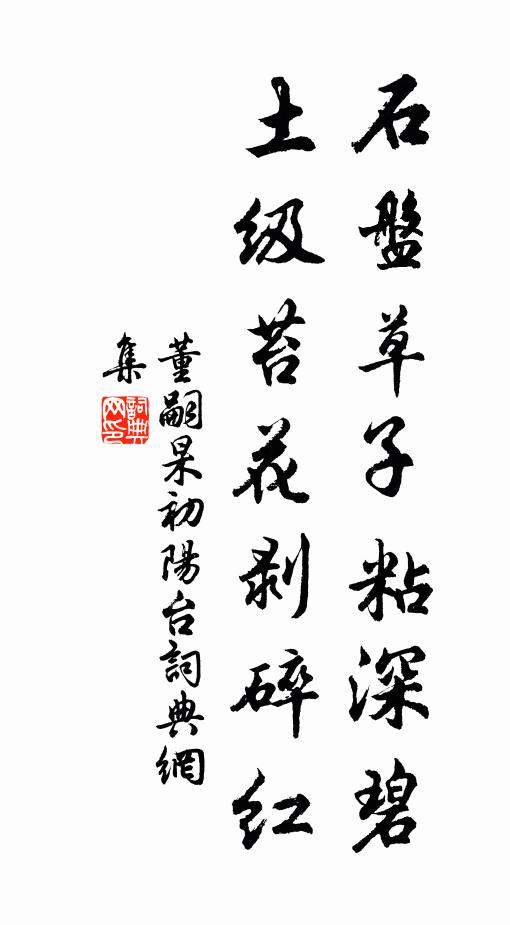 石盤草子粘深碧
土级苔花剥碎红
董嗣杲初陽台詞典網
集
詞典
网印